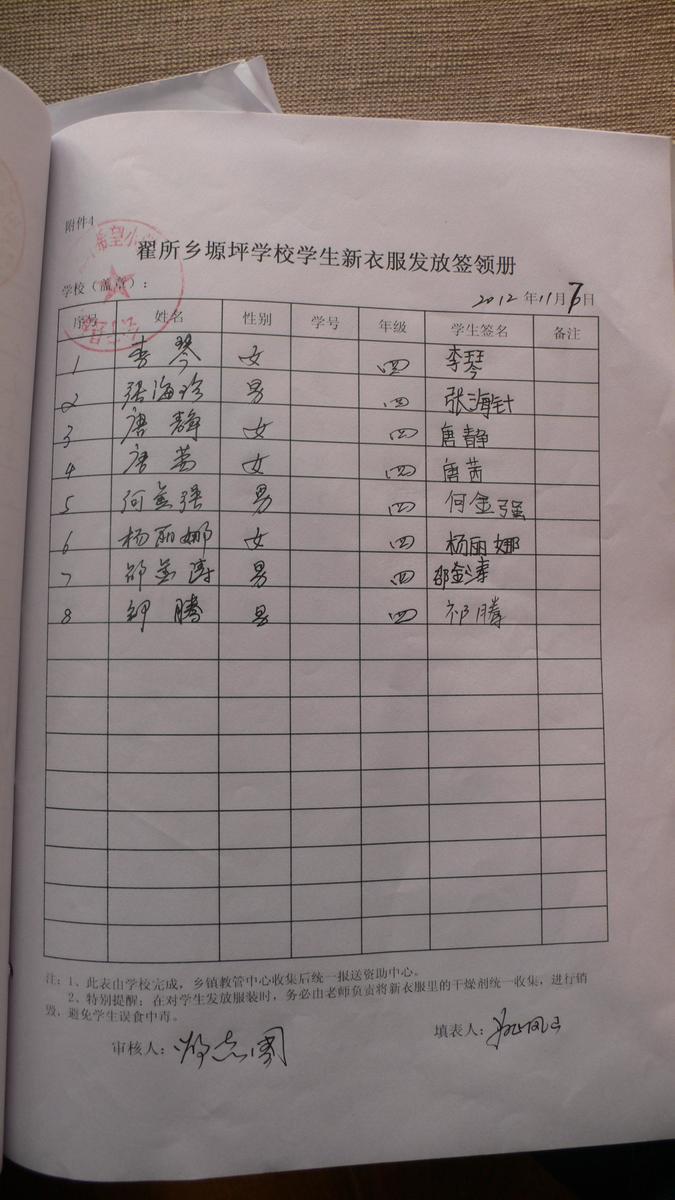 附件4
希望小
翟所乡塬坪学校学生新衣服发放签领册
学校（盖章）： 2012年11月7日
序号 姓名 性别 学号 年级 学生签名 备注
1 李琴 女 四 李琴
2 张海珍 男 四 张海针
3 唐静 女 四 唐静
4 唐茜 女 四 唐茜
5 何金强 男 四 何金强
6 杨丽娜 女 四 杨丽娜
7 邵金涛 男 四 邵金涛
8 祁腾 男 四 祁腾
注：1、此表由学校完成，乡镇教管中心收集后统一报送资助中心。
2、特别提醒：在对学生发放服装时，务必由老师负责将新衣服里的干燥剂统一收集，进行销
毁，避免学生误食中毒。
审核人： 填表人：